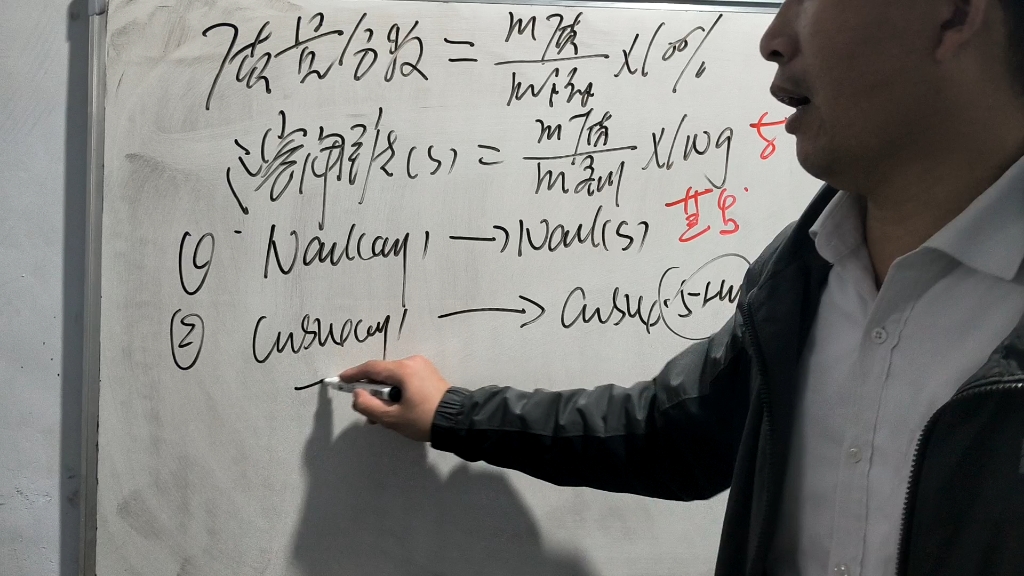 质量分数 = m质/m液 ×100%
溶解度(S) = m质/m剂 ×100g
① NaCl(aq) → NaCl(s)
② CuSO4(aq) → CuSO4·5H2O